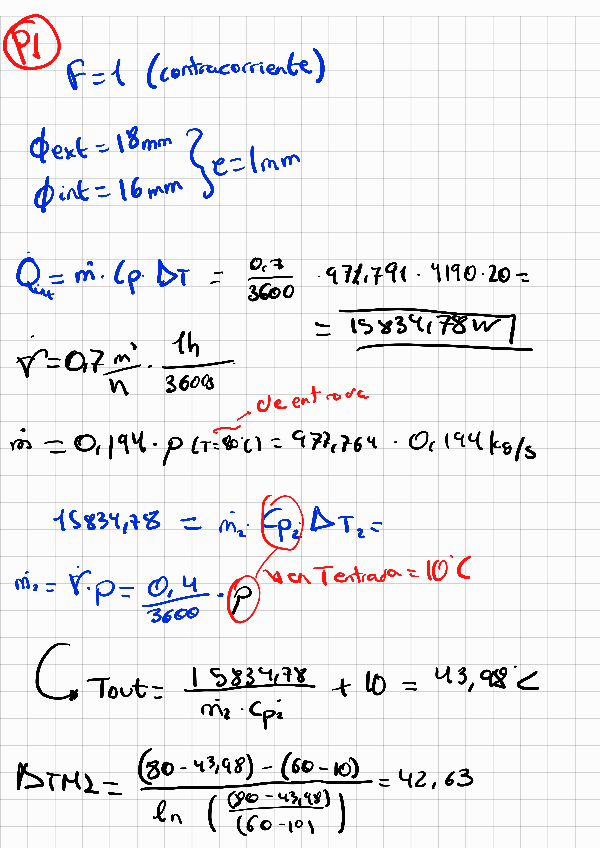 P1
F = 1 (contracorriente)
ϕext = 18mm
ϕint = 16mm } e = 1mm
Q̇int = ṁ · Cp · ΔT = 0,7/3600 · 971,791 · 4190 · 20 =
= 15834,78 W
V̇ = 0,7 m³/h · 1h/3600s
de entrada
ṁ = 0,194 · ρ (T=80°C) = 977,764 · 0,194 kg/s
15834,78 = ṁ2 · Cp2 ΔT2 =
ṁ2 = V̇ · ρ = 0,4/3600 · ρ
en Tentrada = 10°C
Tout = 15834,78/(ṁ2 · Cp2) + 10 = 43,98°C
ΔTML = ((80 - 43,98) - (60 - 10))/(ln ((80 - 43,98)/(60 - 10))) = 42,63